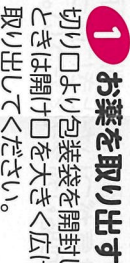 1 お薬を取り出す
切り口より包装袋を開封し
ときは開け口を大きく広げ
取り出してください。